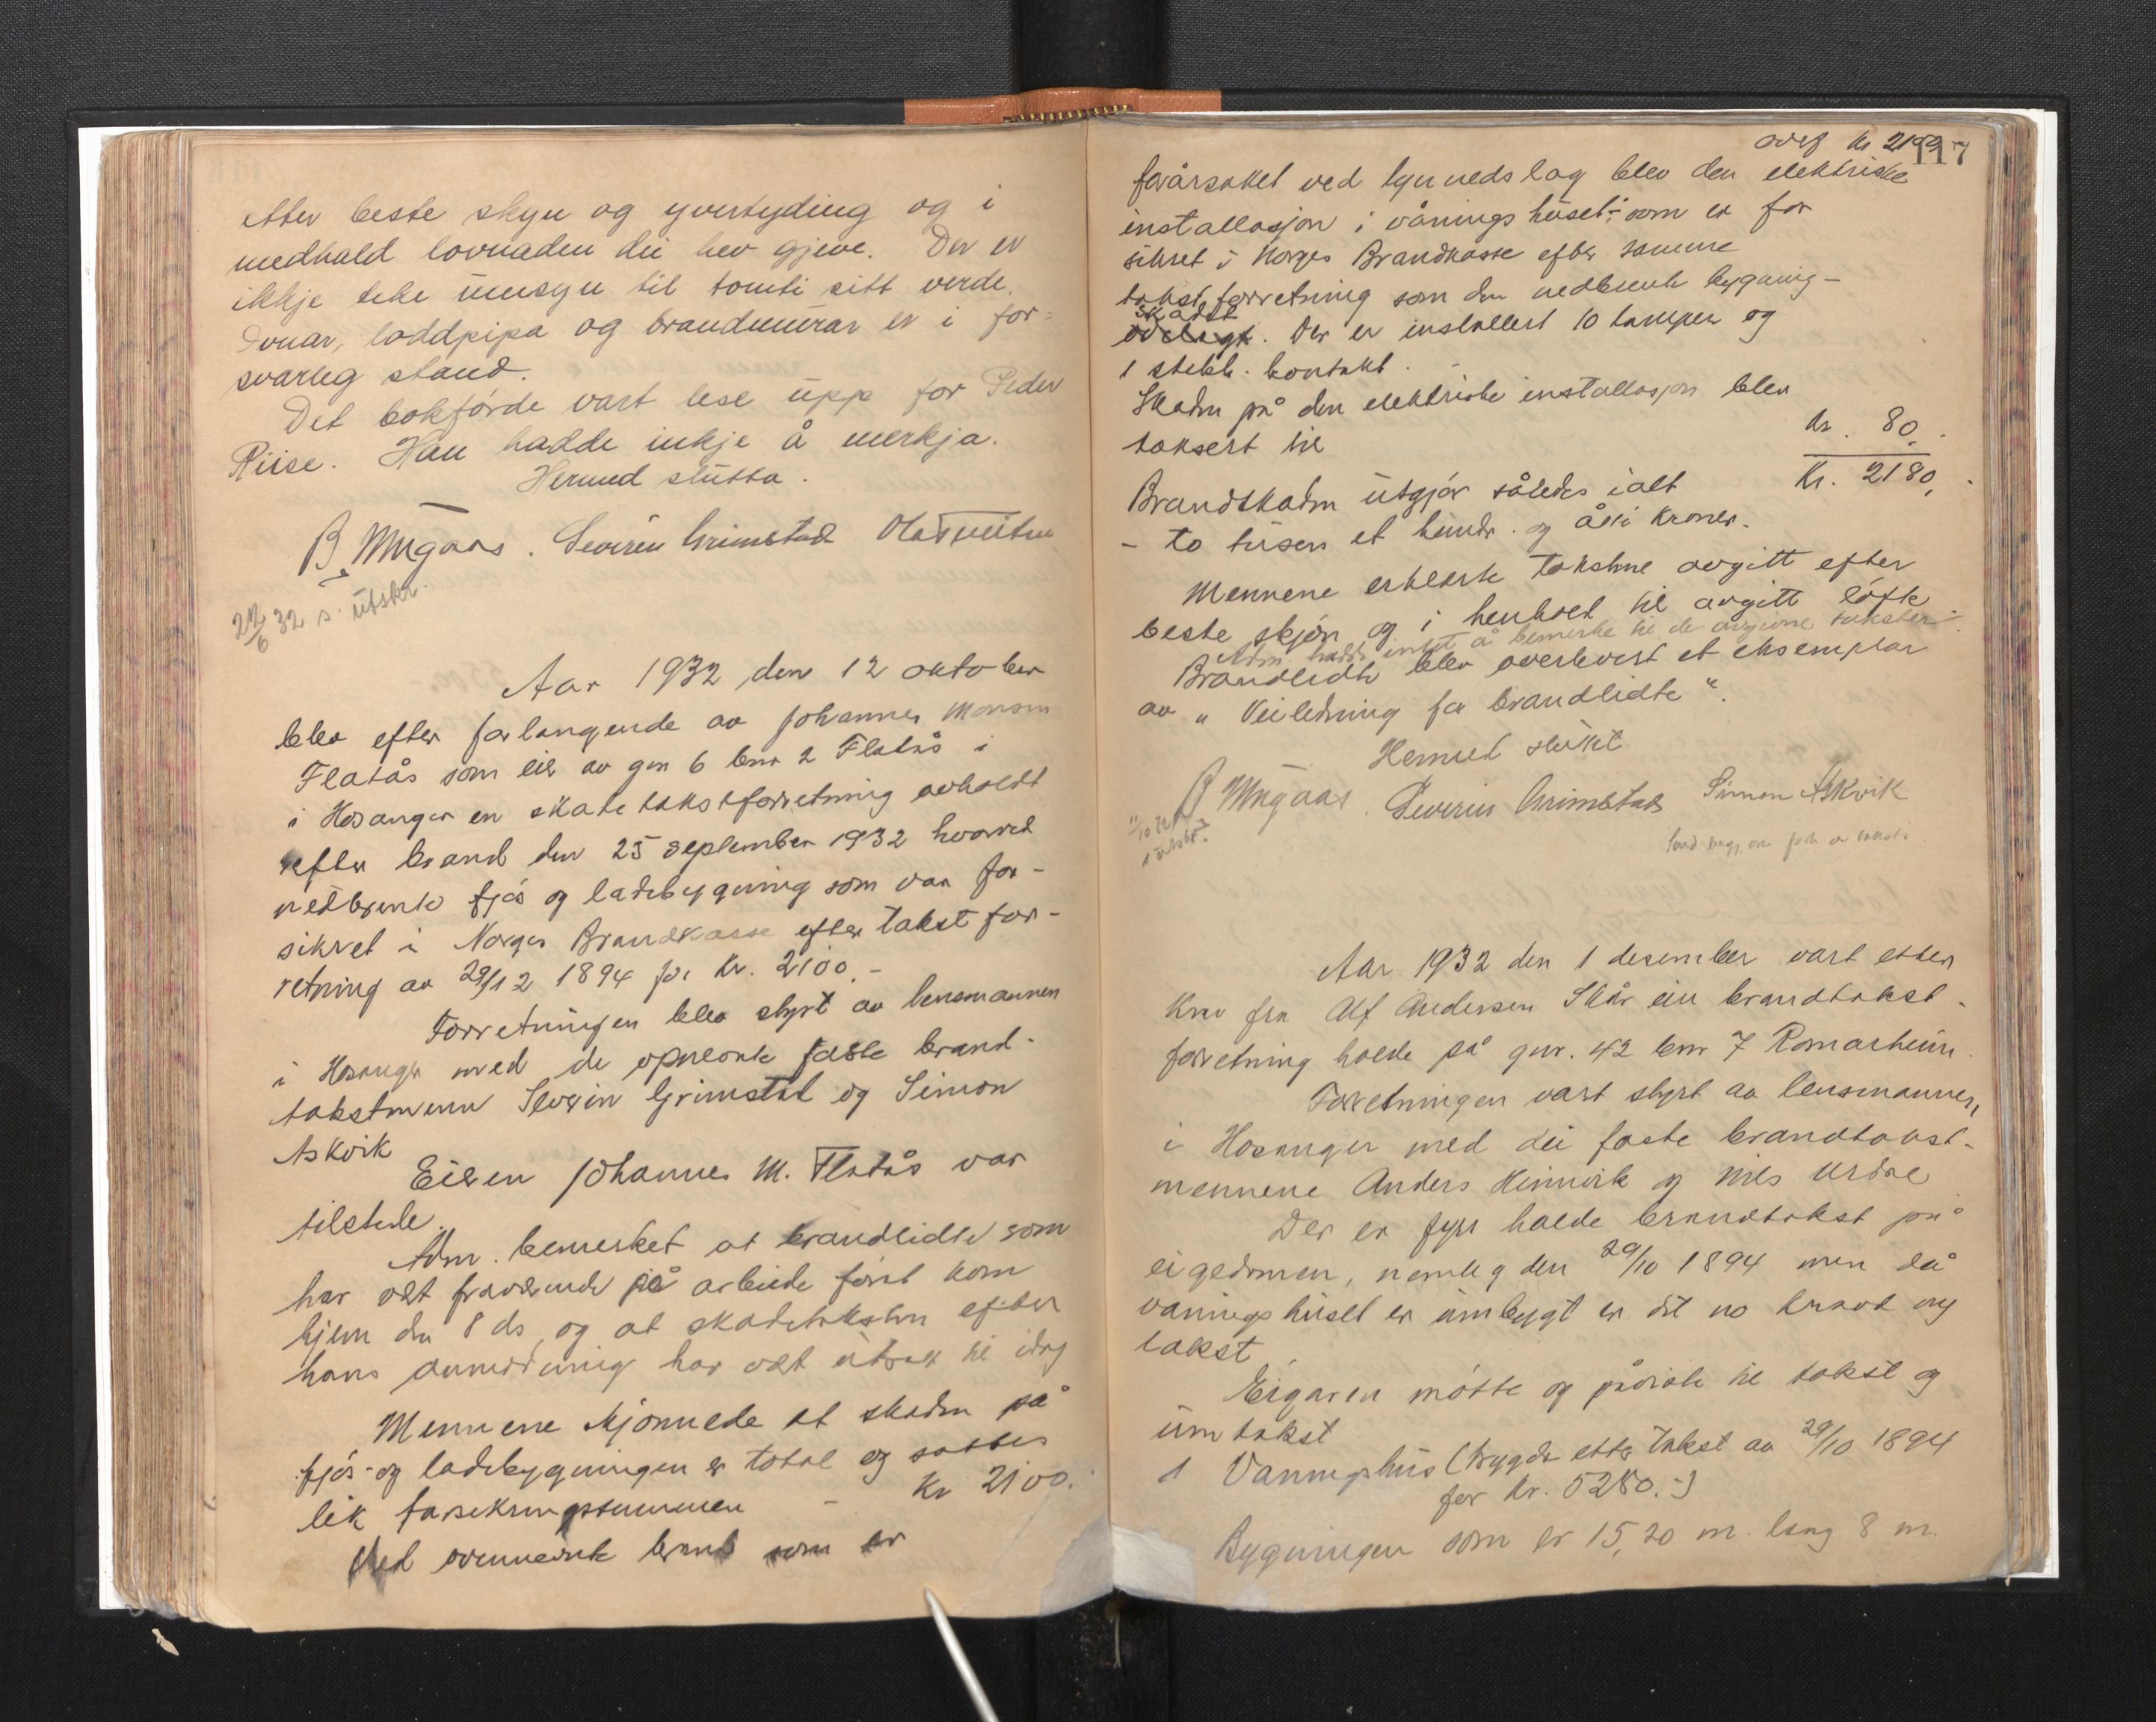 etter beste skyn og yvertyding og i
medhald lovnaden dei hev gjeve. Der er
ikkje teke umsyn til tomti sitt verde.
Omnar, loddpipa og brandmurar er i for=
svarleg stand.
Det bokførde vart lese upp for Peder
Riise. Han hadde inkje å merkja.
Hermed slutta.
B. Mngaas. Severin Grimstad Ola Tveiten
22/6 32 s. utskr.
Aar 1932 den 12 oktober
blev efter forlangende av Johannes Monsen
Flatås som eier av gnr 6 bnr 2 Flatås i
i Hosanger en skadetakstforretning avholdt
efter brand den 25 september 1932 hvorved
nedbrente fjøs og ladebygning som var for-
sikret i Norges Brandkasse efter takstfor-
retning av 29/12 1894 for Kr. 2100.-
Forretningen blev styrt av lensmannen
i Hosanger med de opnevnte faste brand-
takstmenn Severin Grimstad og Simon
Askvik
Eieren Johannes M. Flatås var
tilstede.
Adm. bemerket at brandlidte som
har vært fraværende på arbeide først kom
hjem den 8 ds, og at skadetaksten efter
hans anmodning har vært utsatt til idag
Mennene skjønnede at skaden på
fjøs- og ladebygningen er total og sattes
lik forsikringssummen - Kr 2100.-
Ved ovennevnte brand som er
117
overf kr 2100
forårsaket ved lynnedslag blev den elektriske
installasjon i våningshuset - som er for
sikret i Norges Brandkasse efter samme
takstforretning som den nedbrente bygning -
skadet
ødelagt. Der er installert 10 lamper og
1 stikk. kontakt.
Skaden på den elektriske installasjon blev
taksert til kr. 80,-
Brandskaden utgjør således ialt Kr. 2180,-
- to tusen et hundr. og åtti kroner.
Mennene erklærte takstene avgitt efter
beste skjøn og i henhold til avgitt løfte.
Adm. hadde intet å bemerke til de avgivne takster
Brandlidte blev overlevert et eksemplar
av "Veiledning for brandlidte".
Hermed sluttet
B Mngaas. Severin Grimstad Simon Askvik
Aar 1932 den 1 desember vart etter
Krav fra Alf Andersen Skår ein brandtakst-
forretning halde på gnr. 42 bnr 7 Romarheim.
Forretningen vart styrt av lensmannen
i Hosanger med dei faste brandtakst-
mennene Anders Heimvik og Nils Urdal
Der er fyrr halde brandtakst på
eigedomen, nemleg den 29/10 1894 men då
våningshuset er umbygt er det no kravt ny
takst
Eigaren møtte og påviste til takst og
umtakst
1 Vanningshus (bygde etter takst av 29/10 1894
for kr. 5280.-)
Bygningen som er 15,20 m. lang 8 m.